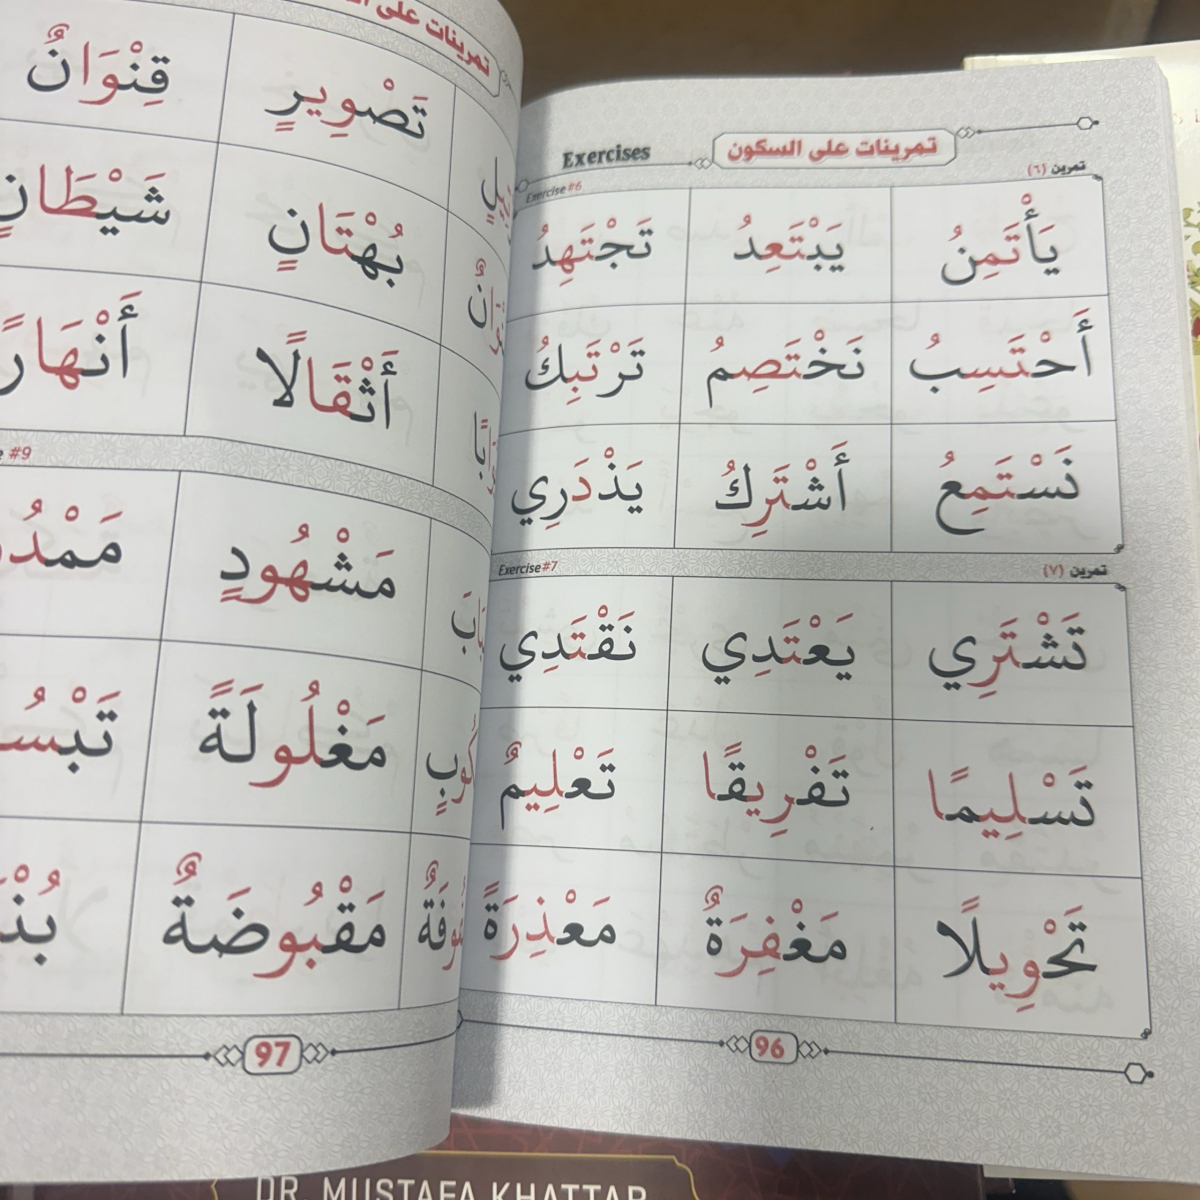 تمرينات على السكون
Exercises
تمرين (٦)
Exercise #6
يَأْتَمِنُ يَبْتَعِدُ تَجْتَهِدُ
أَحْتَسِبُ نَخْتَصِمُ تَرْتَبِكُ
نَسْتَمِعُ أَشْتَرِكُ يَذْدَرِي
تمرين (٧)
Exercise #7
تَشْتَرِي يَعْتَدِي نَقْتَدِي
تَسْلِيمًا تَفْرِيقًا تَعْلِيمٌ
تَحْوِيلًا مَغْفِرَةٌ مَعْذِرَةً
96
تمرينات على
تَصْوِيرٍ قِنْوَانٌ
بُهْتَانٍ شَيْطَانٍ
أَثْقَالًا
#9
مَشْهُودٍ
مَغْلُولَةً
مَقْبُوضَةٌ
97
DR. MUSTAFA KHATTAB